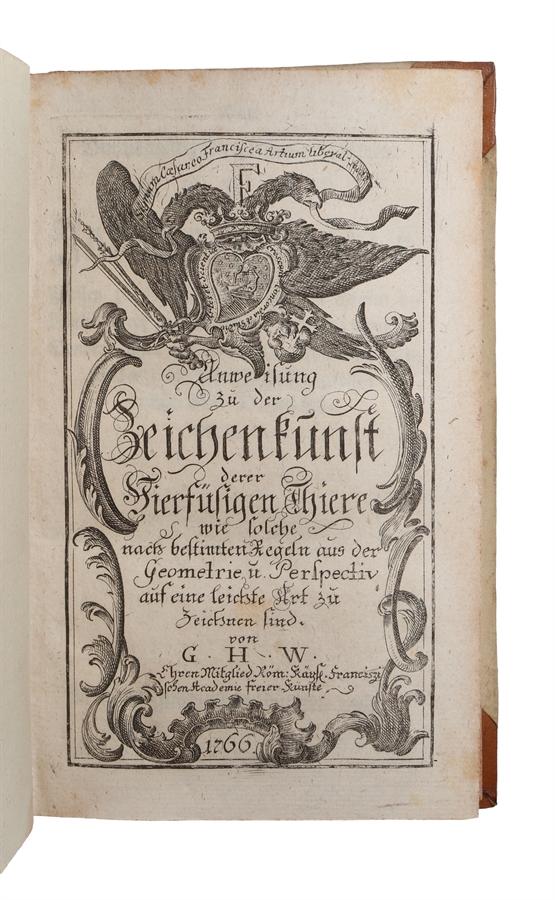 Signum Cæsareo Franciscea Artium Liberal.
F
Anweisung
zu der
Zeichenkunst
derer
Vierfüsigen Thiere
wie solche
nach bestimten Regeln aus der
Geometrie u. Perspectiv
auf eine leichte Art zu
Zeichnen sind.
von
G. H. W.
Ehren Mitglied Röm: Käys. Franciszi
schen Academie freier Künste
1766.